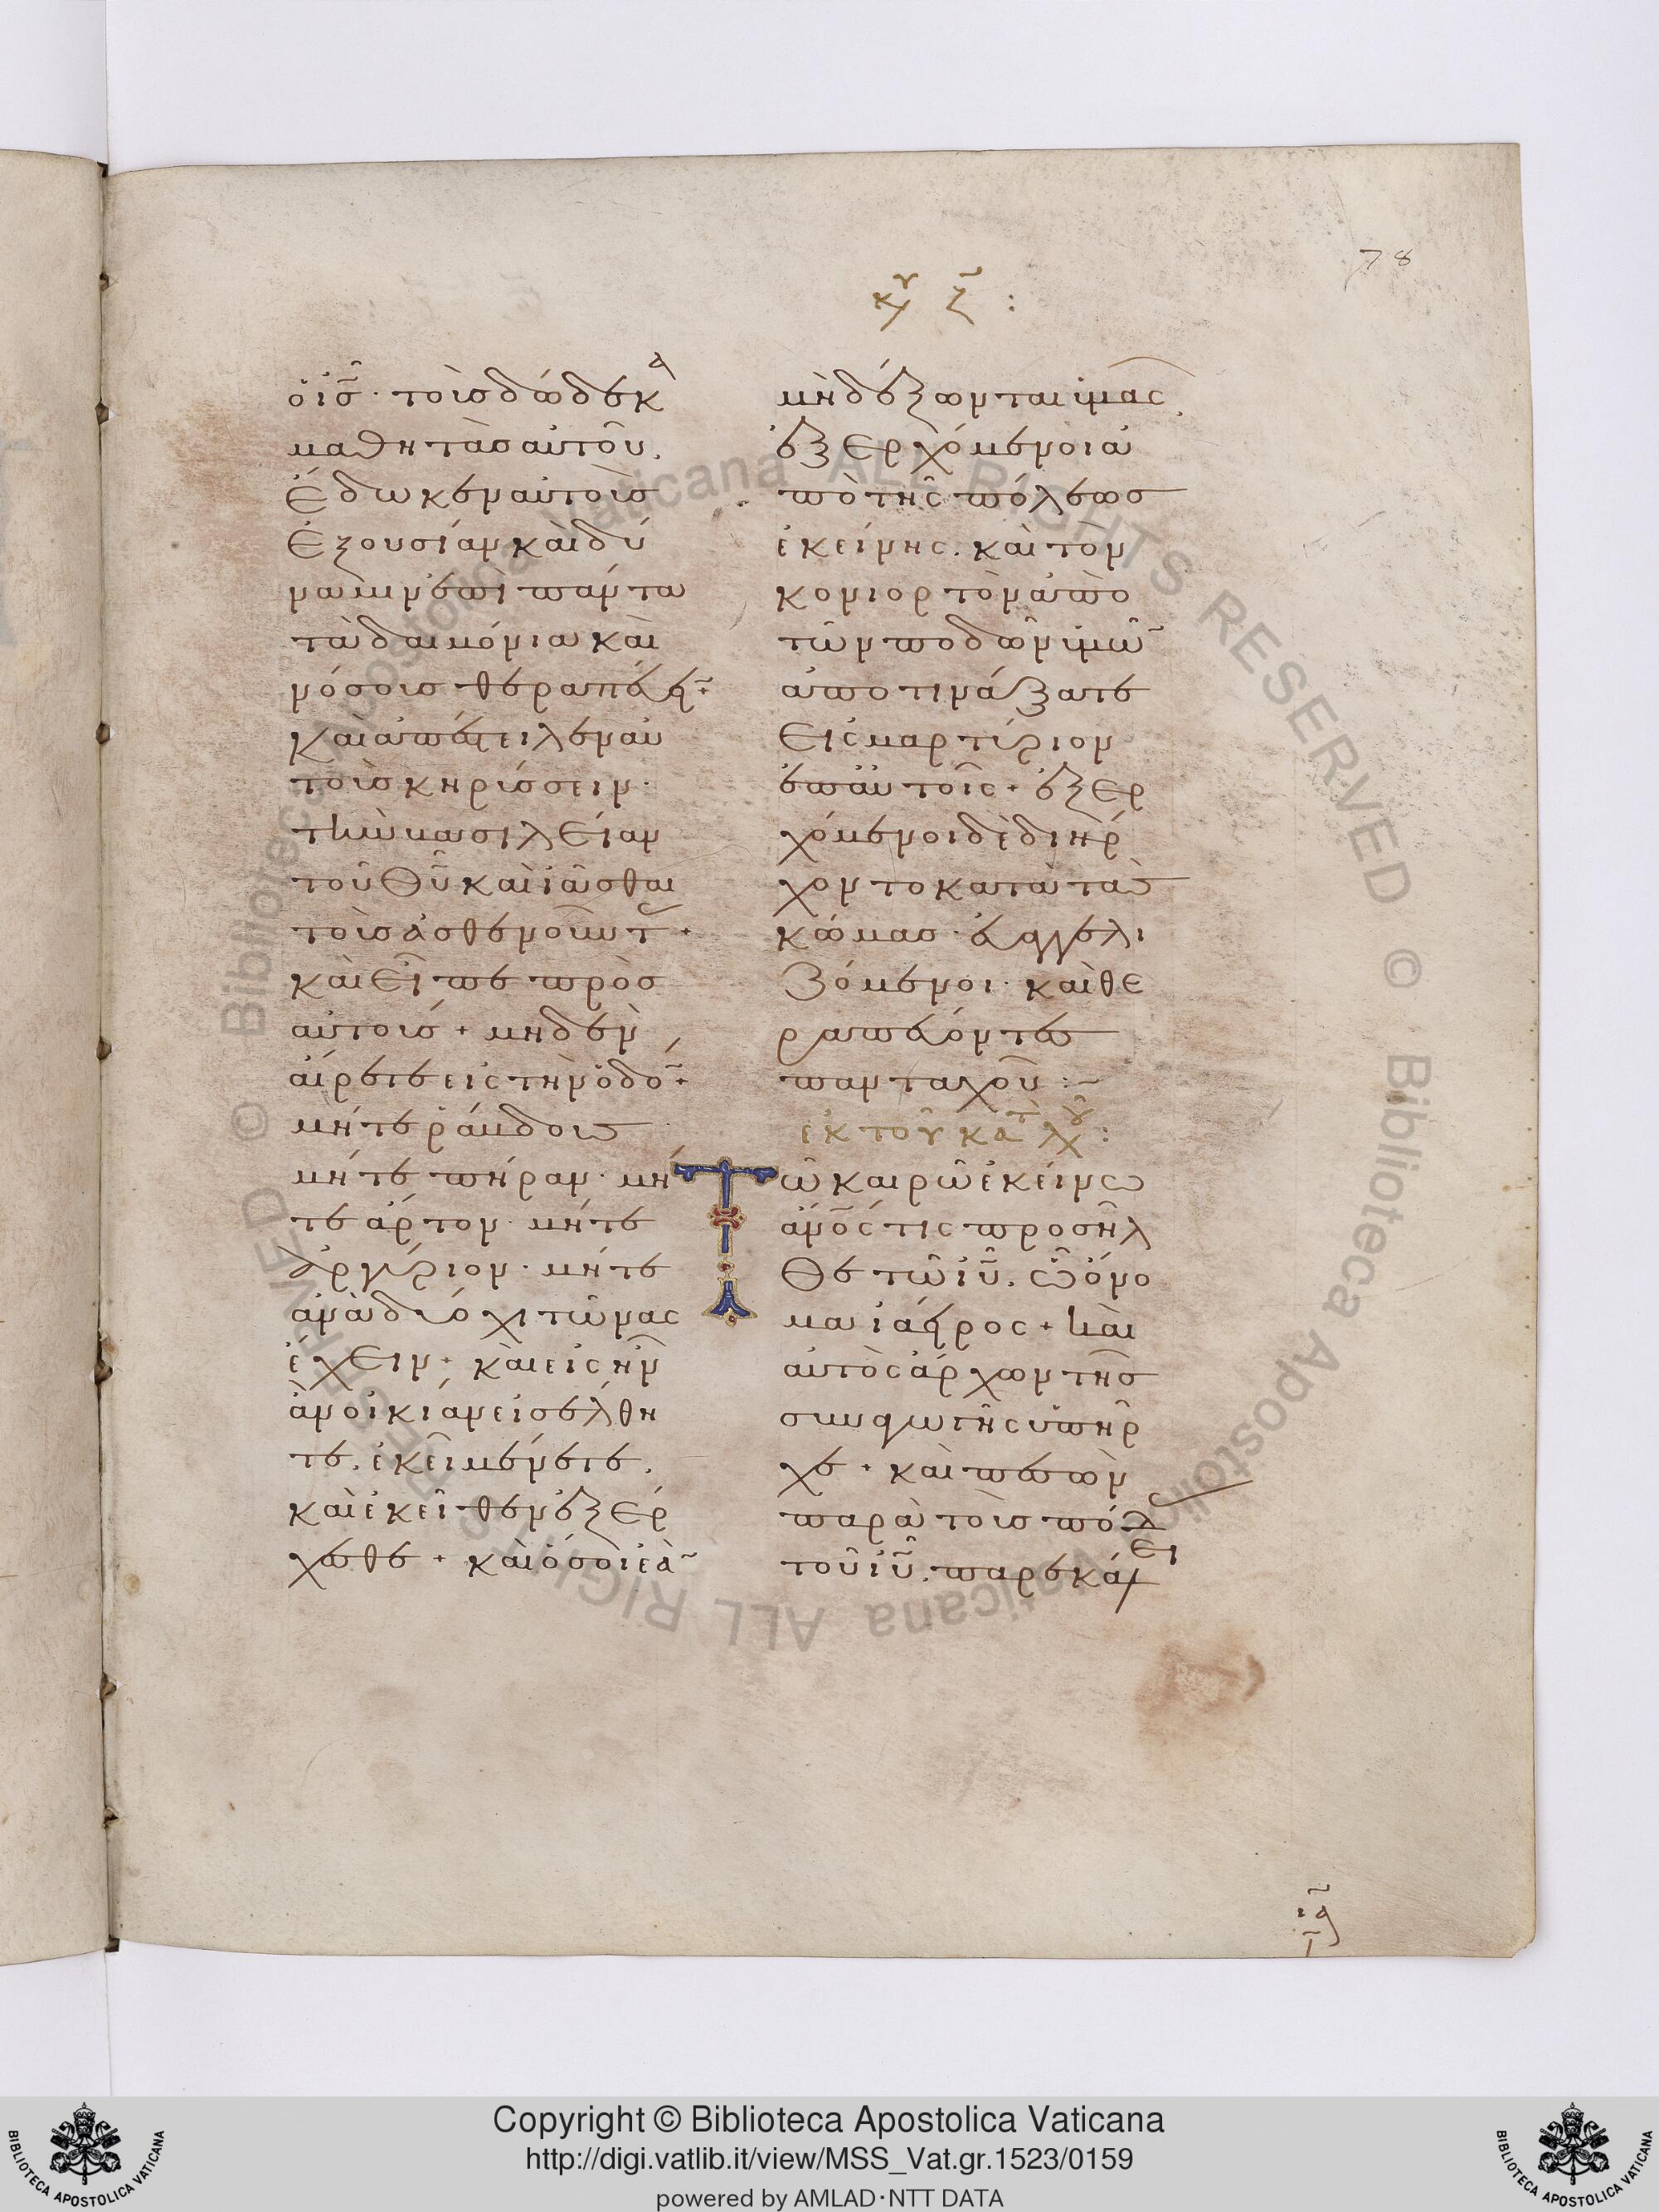 78
κυ ζ :
ὁ ισ̅ · τοὺσ δώδεκα
μαθητὰσ αὐτοῦ,
ἔδωκεν αὐτοῖσ
ἐξουσίαν καὶ δύ
ναμιν ἐπὶ πάντα
τὰ δαιμόνια καὶ
νόσουσ θεραπεύειν +
καὶ ἀπέστειλεν αὐ
τοὺσ κηρύσσειν ·
τὴν βασιλείαν
τοῦ θυ̅ καὶ ἰᾶσθαι
τοὺσ ἀσθενοῦντασ +
καὶ εἶπε πρὸσ
αὐτούσ + μηδὲν
αἴρετε εἰς τὴν ὁδόν +
μήτε ῥάβδουσ
μήτε πήραν · μή
τε ἄρτον · μήτε
ἀργύριον · μήτε
ἀνὰ δύο χιτῶνας
ἔχειν + καὶ εἰς ἣν
ἂν οἰκίαν εἰσέλθη
τε, ἐκεῖ μένετε,
καὶ ἐκεῖθεν ἐξέρ
χεσθε + καὶ ὅσοι ἐὰ̅
μὴ δέξωνται ὑμᾶς,
ἐξερχόμενοι ἀ
πὸ τῆς πόλεωσ
ἐκείνης. καὶ τὸν
κονιορτὸν ἀπὸ
τῶν ποδῶν ὑμῶ̅
ἀποτινάξατε
εἰς μαρτύριον
ἐπ αὐτοῖς + ἐξερ
χόμενοι δὲ διήρ
χοντο κατὰ τὰσ
κώμασ · εὐαγγελι
ζόμενοι · καὶ θε
ραπεύοντεσ
πανταχοῦ :~
ἐκ τοῦ κατὰ λουκ :
Τῶ καιρῶ ἐκείνω
ἀνος τις προσῆλ
θε τῶ ιυ̅. ὧ ὄνο
μα ἰάειρος + καὶ
αὐτὸς ἄρχων τῆσ
συναγωγῆς ὑπῆρ
χε + καὶ πεσὼν
παρὰ τοὺσ πόδασ
τοῦ ιυ̅. παρεκάλει
Copyright © Biblioteca Apostolica Vaticana
http://digi.vatlib.it/view/MSS_Vat.gr.1523/0159
powered by AMLAD·NTT DATA
BIBLIOTECA APOSTOLICA VATICANA
BIBLIOTECA APOSTOLICA VATICANA
© Biblioteca Apostolica Vaticana ALL RIGHTS RESERVED © Biblioteca Apostolica Vaticana ALL RIGHTS RESERVED